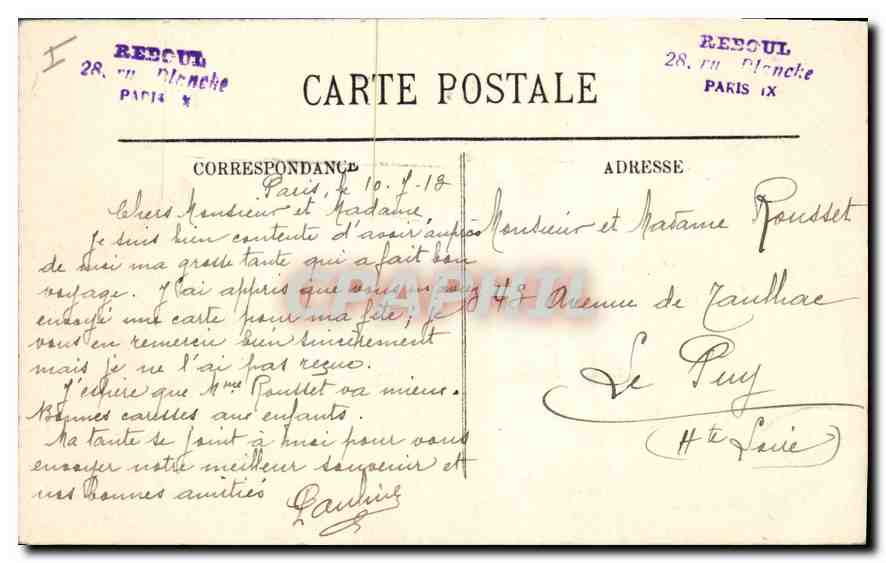 REBOUL
28, ru Blanche
PARIS IX
CARTE POSTALE
REBOUL
28, ru Blanche
PARIS IX
CORRESPONDANCE
ADRESSE
Paris, le 10-7-18
Chers Monsieur et Madame,
Je suis bien contente d'avoir auprès
de moi ma grosse tante qui a fait bon
voyage. J'ai appris que vous m'avez
envoyé une carte pour ma fête; je
vous en remercie bien sincèrement
mais je ne l'ai pas reçue.
J'espère que Mme Rousset va mieux.
Bonnes caresses aux enfants.
Ma tante se joint à moi pour vous
envoyer notre meilleur souvenir et
nos bonnes amitiés
Pauline
Monsieur et Madame Rousset
48 Avenue de Taulhac
Le Puy
(Hte Loire)
CPAPHIL